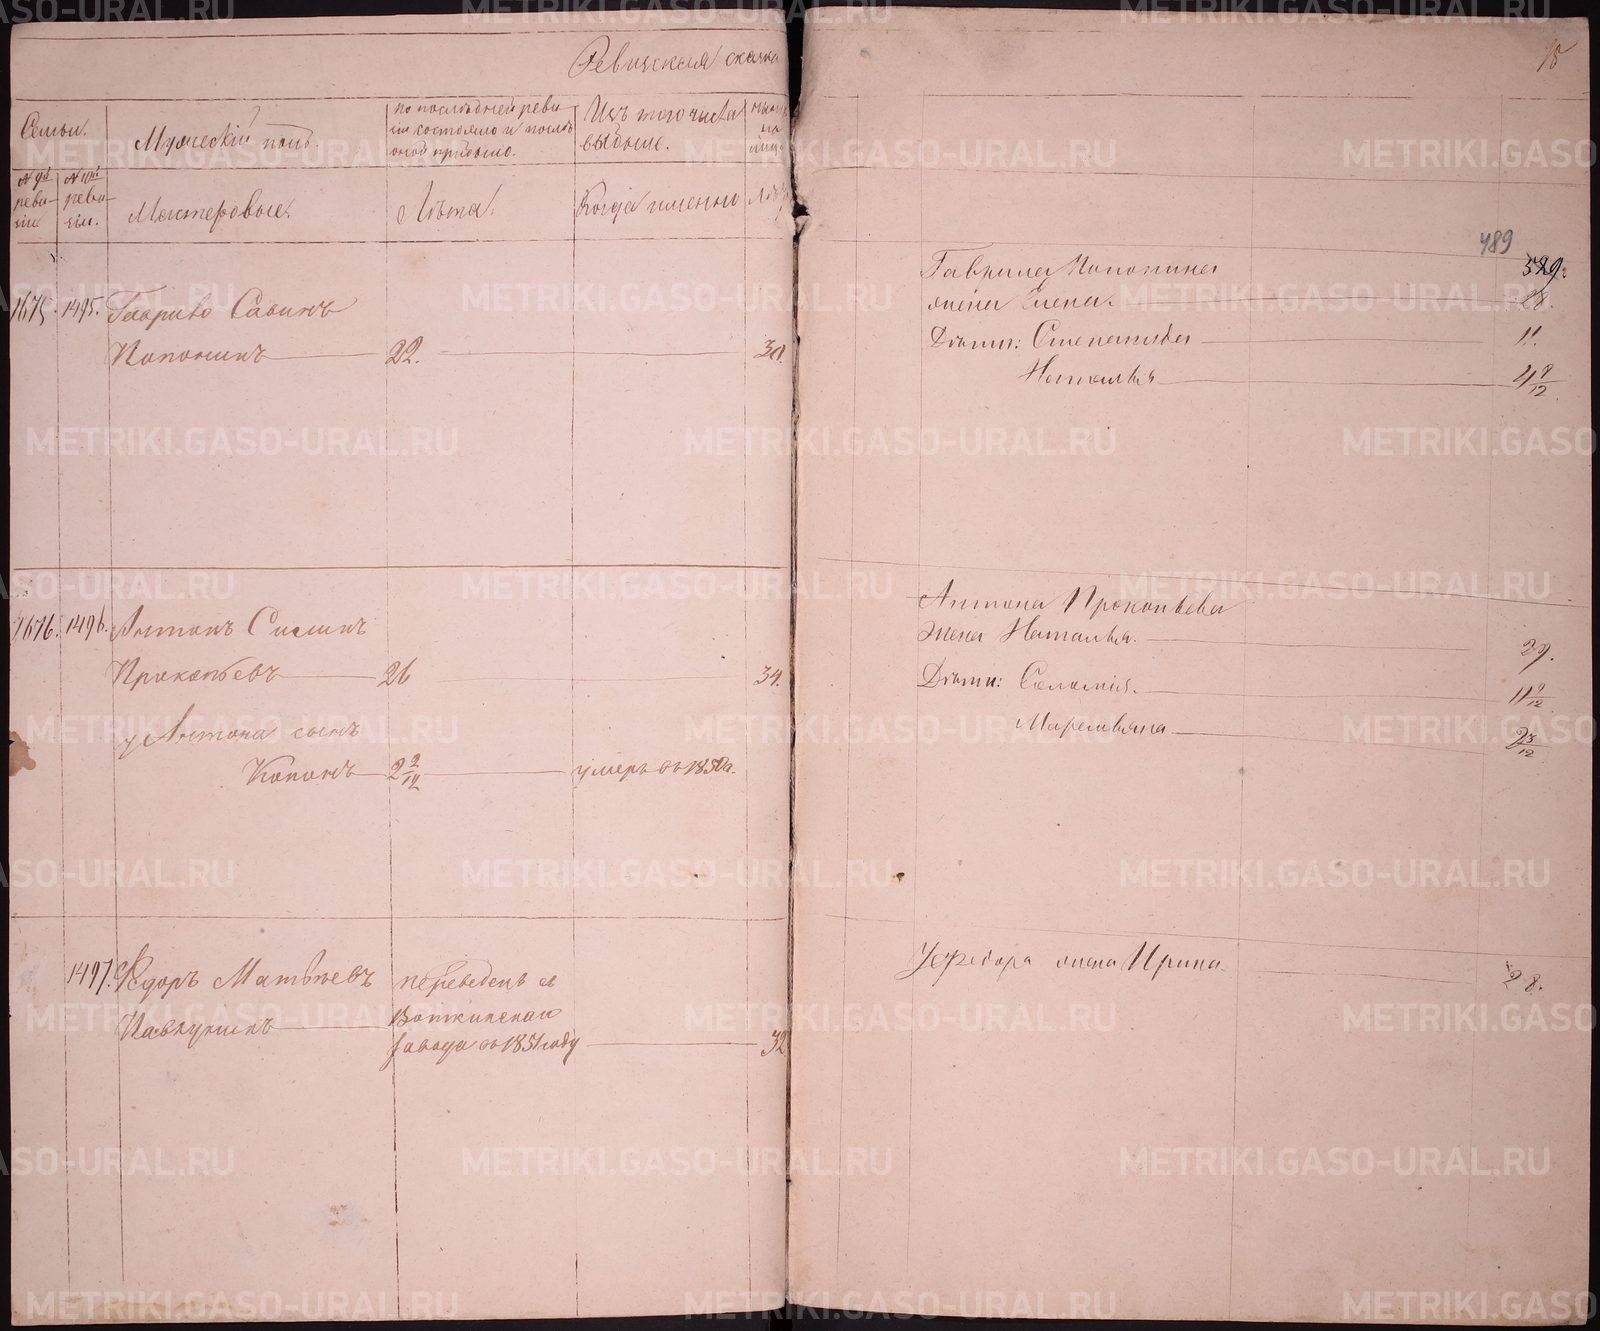 Ревизская сказка
Семьи.
Мужескій полъ.
по последней реви
зіи состояло и послѣ
оной прибыло.
Изъ того числа
выбыло.
№ 9й
реви-
зіи
№ 10й
реви-
зіи.
Мастеровые.
Лѣта.
Когда именно
1675. 1495. Гаврило Савинъ
22. 30.
1676. 1496. Антонъ Силинъ
Прокопьевъ 26 34.
у Антона сынъ
Кононъ 2 2/12 умеръ въ 1850 г.
1497. Ѳедоръ Матвѣевъ переведенъ съ
Воткинскаго
завода въ 1851 году 32
18
489
529.
Гаврила
жена Елена. 28.
Дѣти: Степанида 11.
Наталья 4 9/12
Антона Прокопьева
жена Наталья. 29.
Дѣти: Соломія. 11 9/12
Маремьяна 2 3/12
У Федора жена Ирина. 28.
METRIKI.GASO-URAL.RU